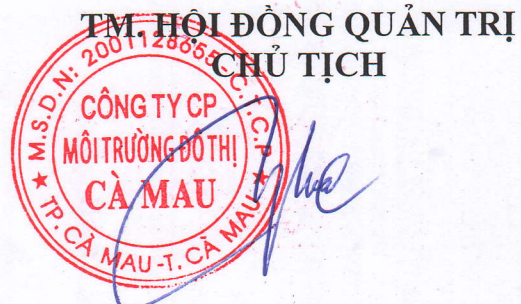 TM. HỘI ĐỒNG QUẢN TRỊ
CHỦ TỊCH
M.S.D.N: 2001128655-C.T.C.P
CÔNG TY CP
MÔI TRƯỜNG ĐÔ THỊ
CÀ MAU
TP. CÀ MAU-T. CÀ MAU